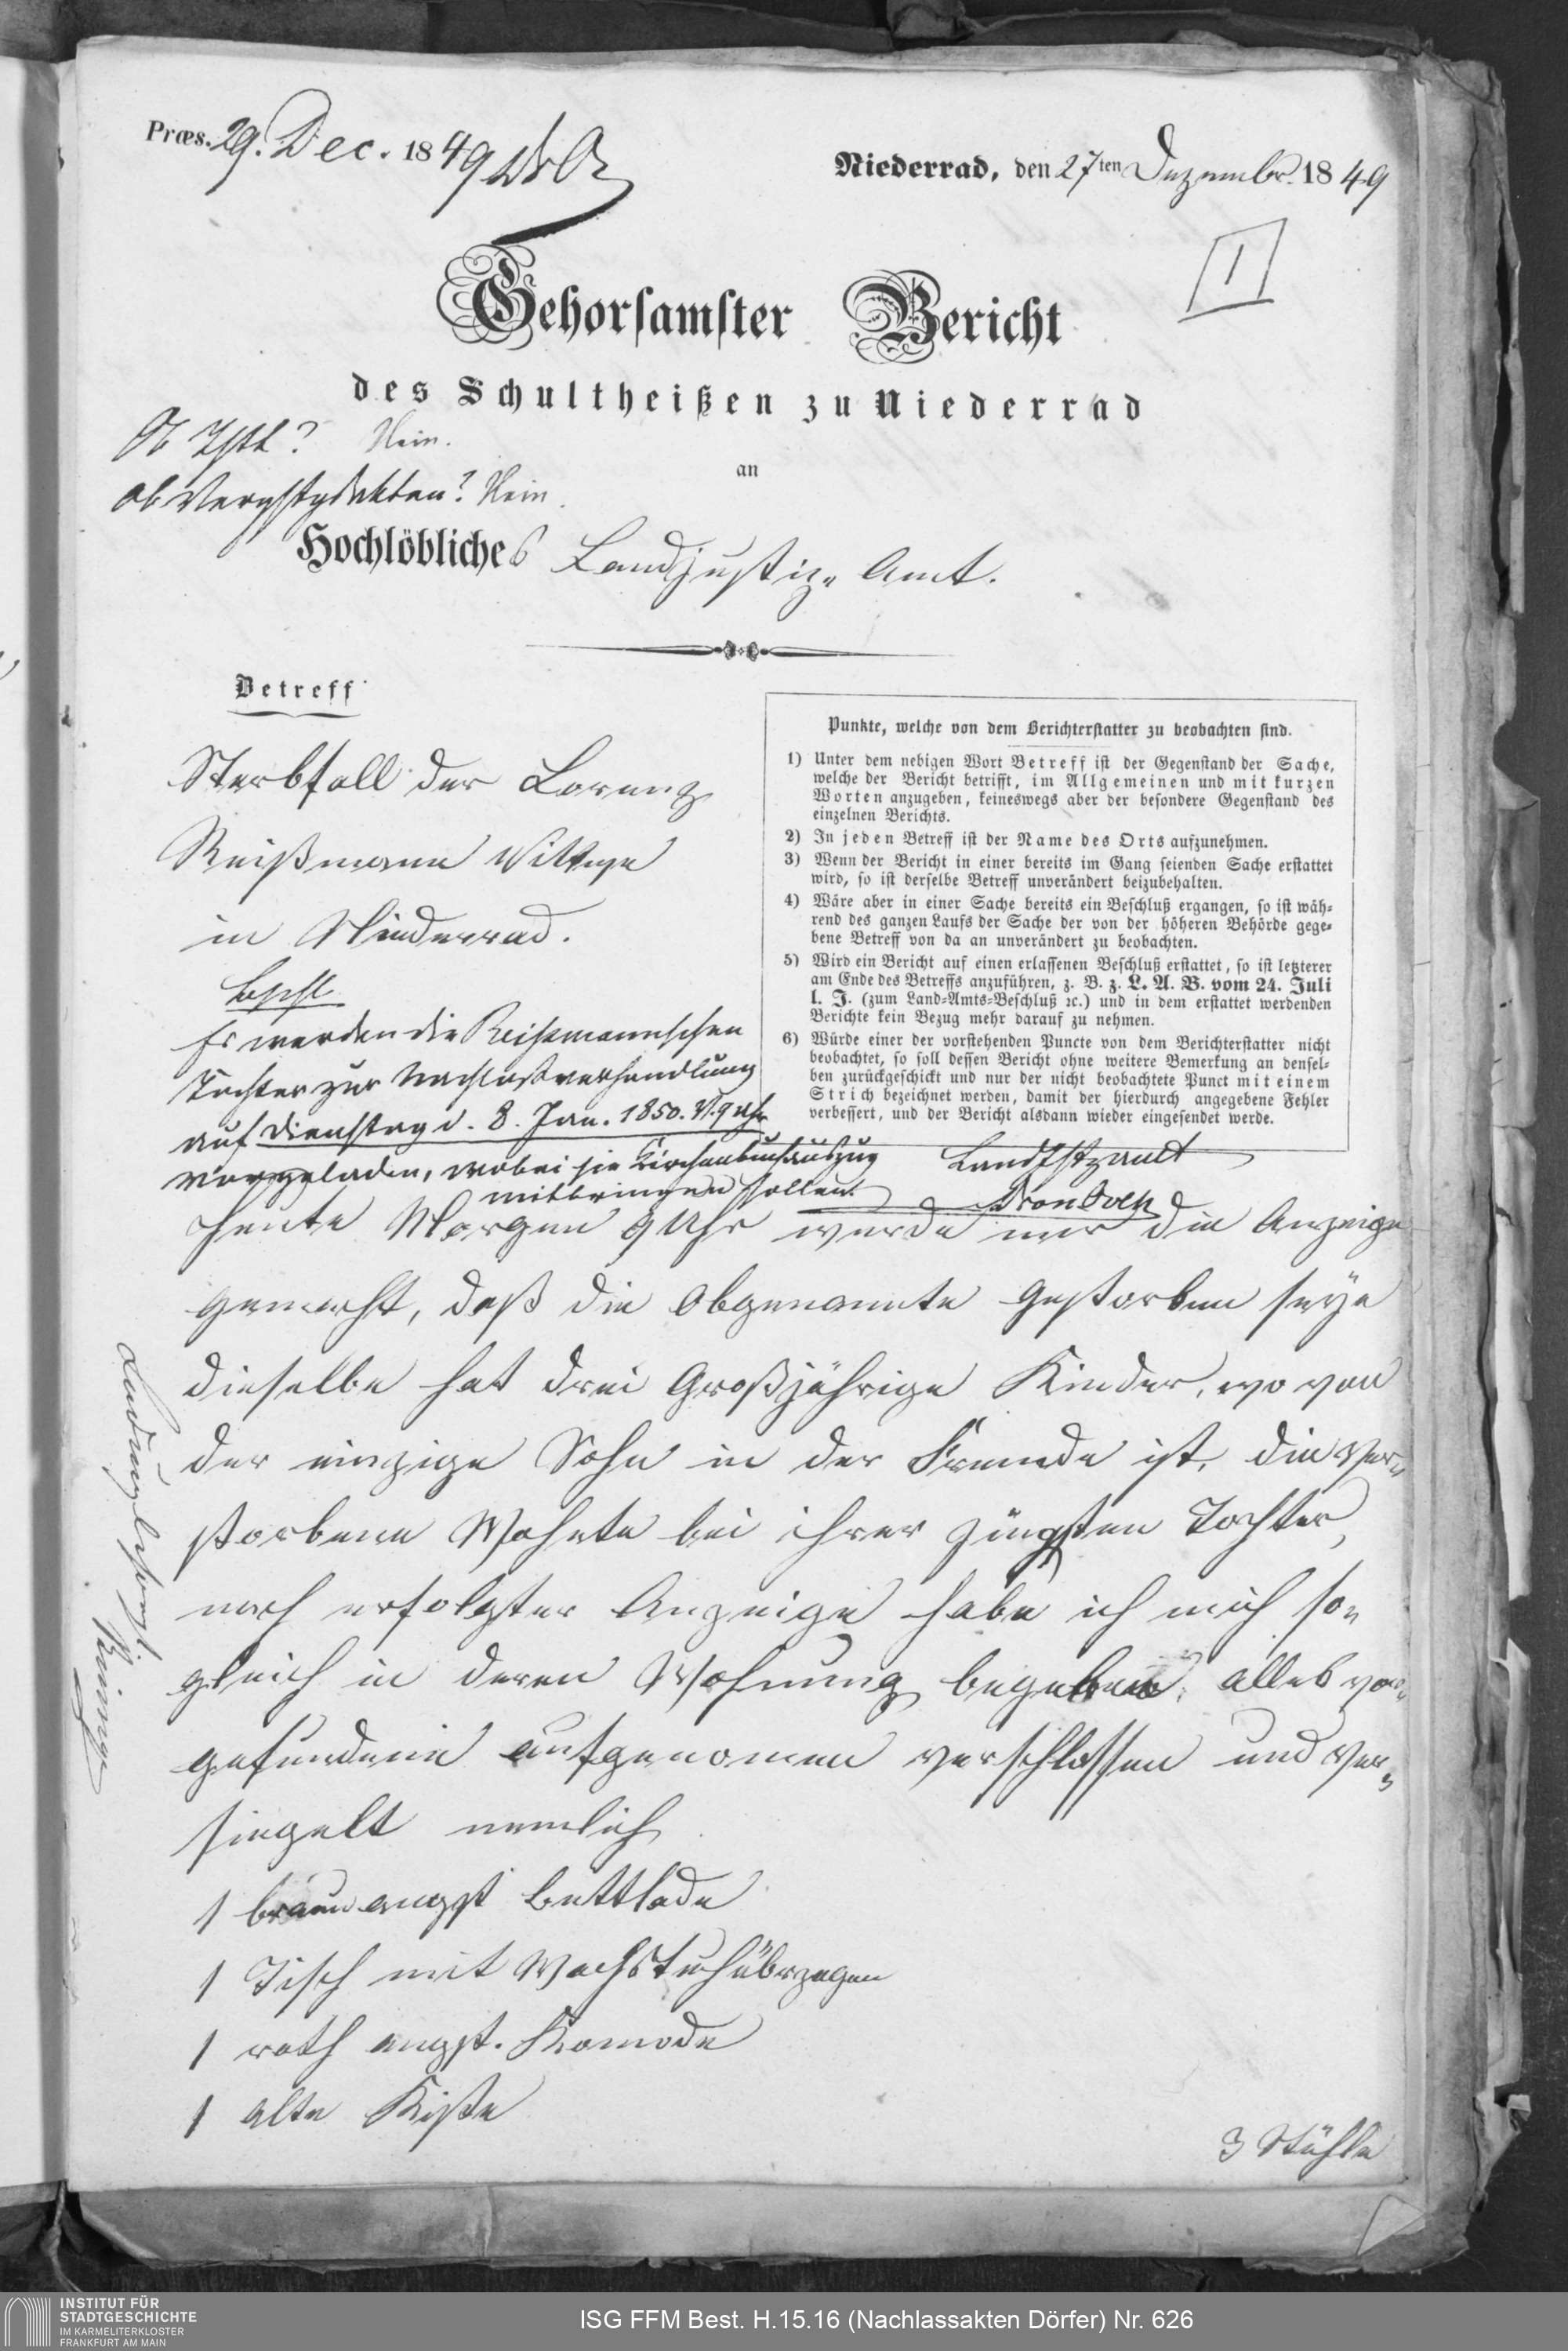 Præs. 29. Dec. 1849
Niederrad, den 27ten Dezember 1849
1
Gehorsamster Bericht
des Schultheißen zu Niederrad
Ob Nein.
ob Nein.
an
Hochlöbliches Landjustiz-Amt.
Betreff
Sterbfall der Lorenz
Reißmann Wittwe
in Niederrad.
Bschl.
Es werden die Reißmannschen
Töchter zur Nachlaßverhandlung
auf Dienstag d. 8. Jan. 1850. V. 9 Uhr
vorgeladen, wobei sie Kirchenbuchauszug
mitbringen sollen.
Punkte, welche von dem Berichterstatter zu beobachten sind.
1) Unter dem nebigen Wort Betreff ist der Gegenstand der Sache,
welche der Bericht betrifft, im Allgemeinen und mit kurzen
Worten anzugeben, keineswegs aber der besondere Gegenstand des
einzelnen Berichts.
2) In jeden Betreff ist der Name des Orts aufzunehmen.
3) Wenn der Bericht in einer bereits im Gang seienden Sache erstattet
wird, so ist derselbe Betreff unverändert beizubehalten.
4) Wäre aber in einer Sache bereits ein Beschluß ergangen, so ist wäh-
rend des ganzen Laufs der Sache der von der höheren Behörde gege-
bene Betreff von da an unverändert zu beobachten.
5) Wird ein Bericht auf einen erlassenen Beschluß erstattet, so ist letzterer
am Ende des Betreffs anzuführen, z. B. z. L. A. B. vom 24. Juli
l. J. (zum Land-Amts-Beschluß ꝛc.) und in dem erstattet werdenden
Berichte kein Bezug mehr darauf zu nehmen.
6) Würde einer der vorstehenden Puncte von dem Berichterstatter nicht
beobachtet, so soll dessen Bericht ohne weitere Bemerkung an densel-
ben zurückgeschickt und nur der nicht beobachtete Punct mit einem
Strich bezeichnet werden, damit der hierdurch angegebene Fehler
verbessert, und der Bericht alsdann wieder eingesendet werde.
Heute Morgen 9 Uhr wurde mir die Anzeige
gemacht, daß die Obgenannte gestorben seye
dieselbe hat drei Großjährige Kinder, wo von
der einzige Sohn in der Fremde ist, die Ver-
storbene Wohnte bei ihrer jüngsten Tochter,
nach erfolgter Anzeige habe ich mich so-
gleich in deren Wohnung begeben, alles vor-
gefundene aufgenomen verschlossen und ver-
siegelt nemlich
1 braun angst Bettlade
1 Tisch mit Wachstuch überzogen
1 roth angst. Komode
1 alte Kiste
3 Stühle
INSTITUT FÜR
STADTGESCHICHTE
IM KARMELITERKLOSTER
FRANKFURT AM MAIN
ISG FFM Best. H.15.16 (Nachlassakten Dörfer) Nr. 626